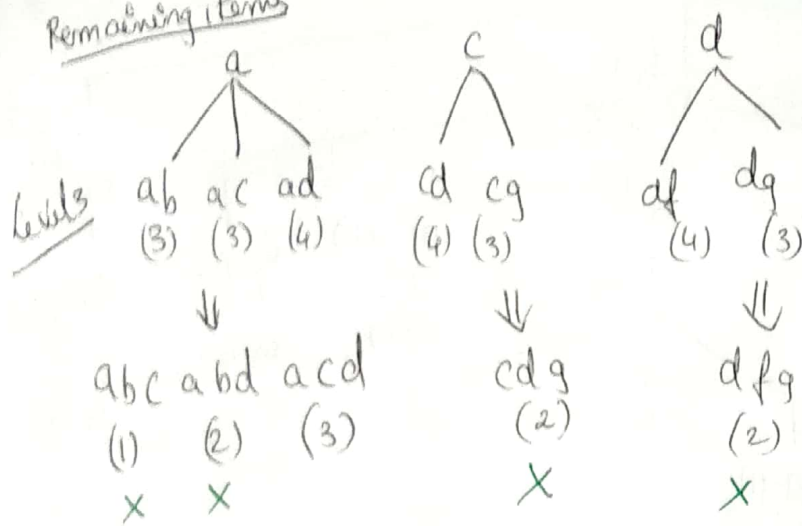 Remaining items
a c d
Level3 ab ac ad cd cg df dg
(3) (3) (4) (4) (3) (4) (3)
⇓ ⇓ ⇓
abc abd acd cdg dfg
(1) (2) (3) (2) (2)
x x x x